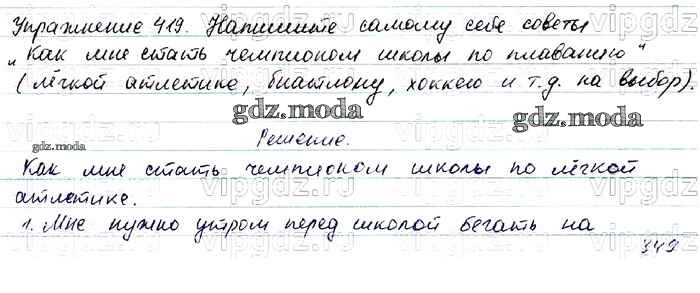 Упражнение 419. Напишите самому себе советы
„Как мне стать чемпионом школы по плаванию"
(лёгкой атлетике, биатлону, хоккею и т.д. на выбор).
gdz.moda
gdz.moda
Решение.
gdz.moda
Как мне стать чемпионом школы по лёгкой
атлетике.
1. Мне нужно утром перед школой бегать на
349